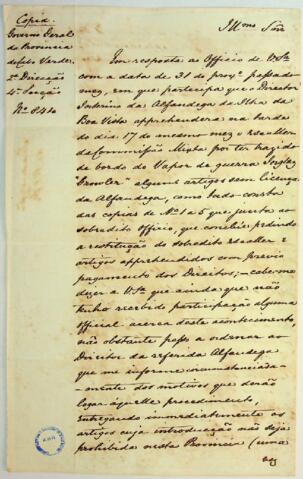 Copia.
Governo Geral
da Provincia
de Cabo Verde.
2ª Direcção
4ª Secção
Nº 841.
Illmo Snr
Em resposta ao Officio de VSª
com a data de 31 do proxº passado
mez, em que participa que o Director
Interino da Alfandega da Ilha da
Boa Vista apprehendera na tarde
do dia 17 do mesmo mez o escaller
da Commissão Mixta por ter trazido
de bordo do Vapor de guerra Inglez
Growler alguns artigos sem licença
da Alfandega, como tudo consta
das copias de Nº 1 a 5 que, junta ao
sobredito Officio, que conclue pedindo
a restituição do sobredito escaller e
artigos apprehendidos com previo
pagamento dos Direitos; cabe-me
dizer a VSª que ainda que não
tenho recebido participação alguma
official acerca deste acontecimento,
não obstante passo a ordenar ao
Director da referida Alfandega
que me informe circumstanciada-
-mente dos motivos que derão
logar áquelle procedimento,
entregando immediatamente os
artigos cuja introducção não seja
prohibida nesta Provincia (uma
vez